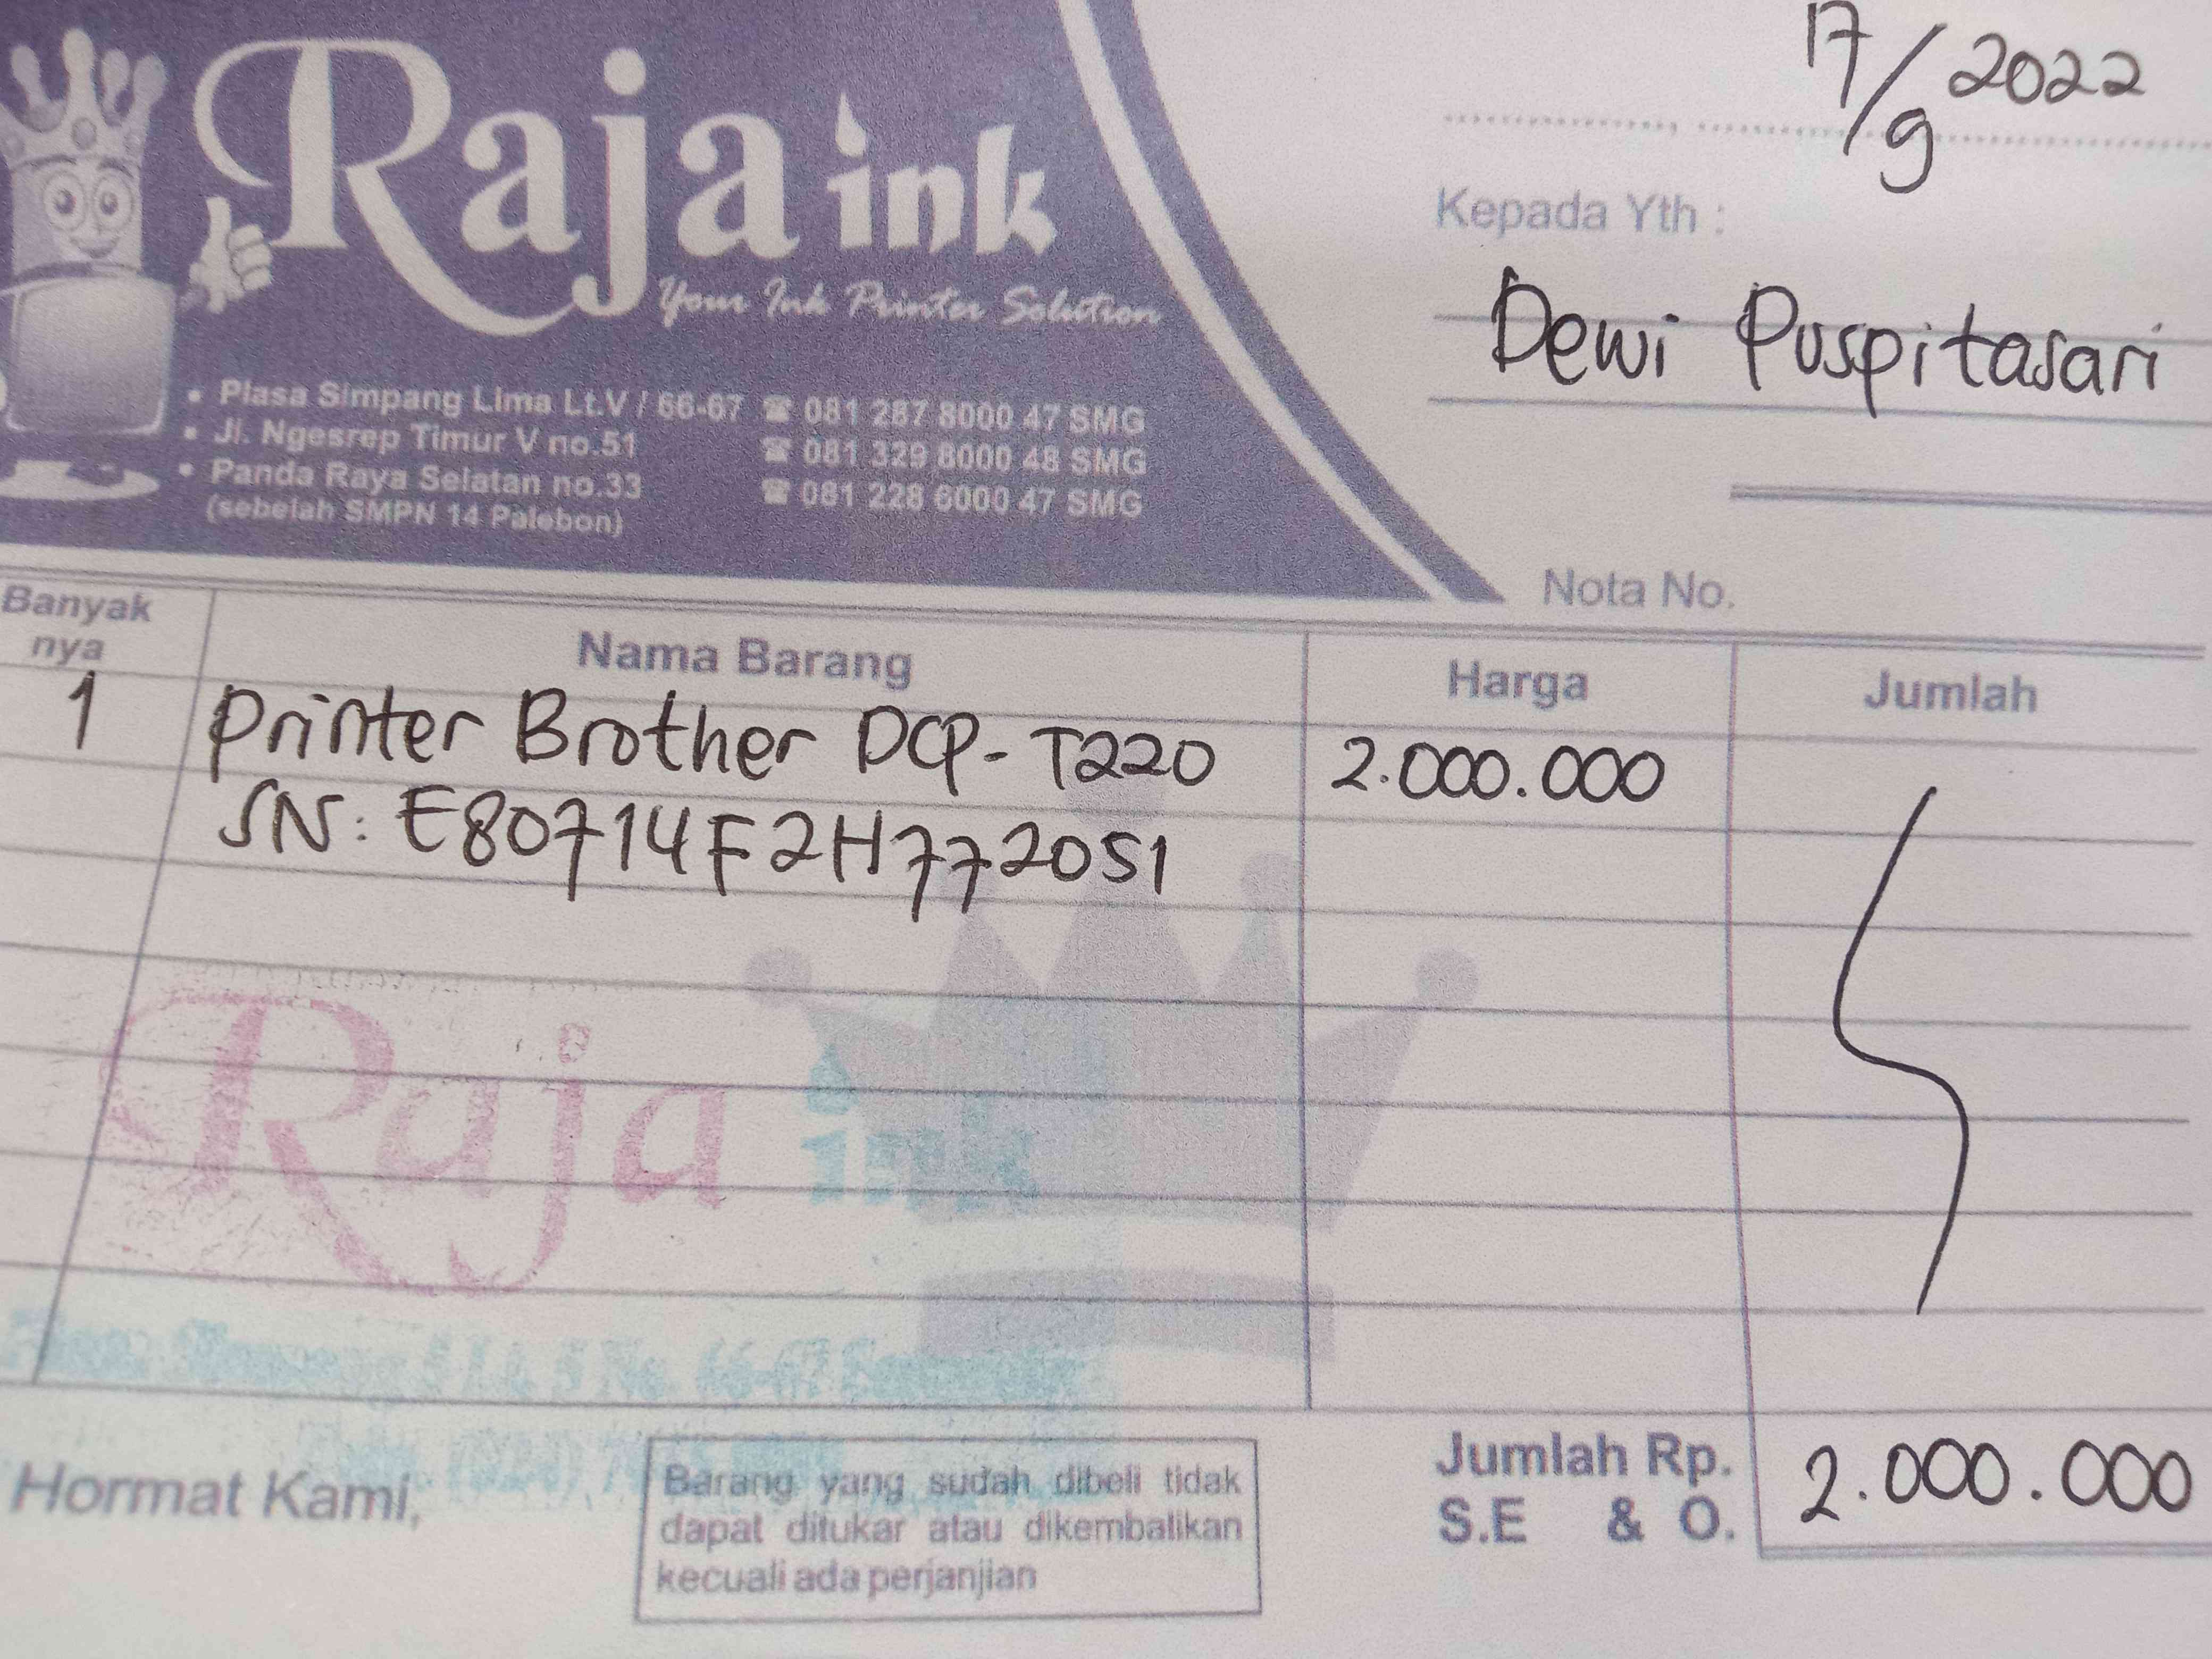 Raja ink
Your Ink Printer Solution
• Plasa Simpang Lima Lt.V / 66-67 ☎ 081 287 8000 47 SMG
• Jl. Ngesrep Timur V no.51 ☎ 081 329 8000 48 SMG
• Panda Raya Selatan no.33 ☎ 081 228 6000 47 SMG
(sebelah SMPN 14 Palebon)
17/9 2022
Kepada Yth :
Dewi Puspitasari
Nota No.
Banyak nya Nama Barang Harga Jumlah
1 Printer Brother DCP-T220 2.000.000
SN: E80714F2H772051
Raja ink
No. 66-67
Hormat Kami,
Barang yang sudah dibeli tidak
dapat ditukar atau dikembalikan
kecuali ada perjanjian
Jumlah Rp. 2.000.000
S.E & O.